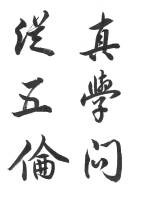 真學问
從五倫